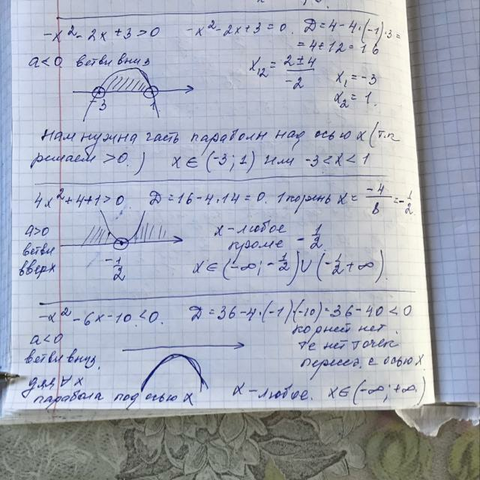 -x²-2x+3>0   -x²-2x+3=0. D=4-4·(-1)·3=
=4+12=16
a<0 ветви вниз   x₁₂ = (2±4)/(-2)
x₁=-3
x₂=1.
-3   1
Нам нужна часть параболы над осью x (т.к
решаем >0.)   x∈(-3;1) или -3<x<1
4x²+4+1>0.   D=16-4·14=0. 1 корень x=-4/8=-1/2
a>0
ветви
вверх
-1/2
x-любое
кроме -1/2.
x∈(-∞;-1/2)∪(-1/2+∞.
-x²-6x-10<0.   D=36-4·(-1)(-10)=36-40<0
a<0
ветви вниз.
корней нет.
те нет точек
пересеч. с осью x.
для ∀x
парабола под осью x
x-любое. x∈(-∞;+∞)